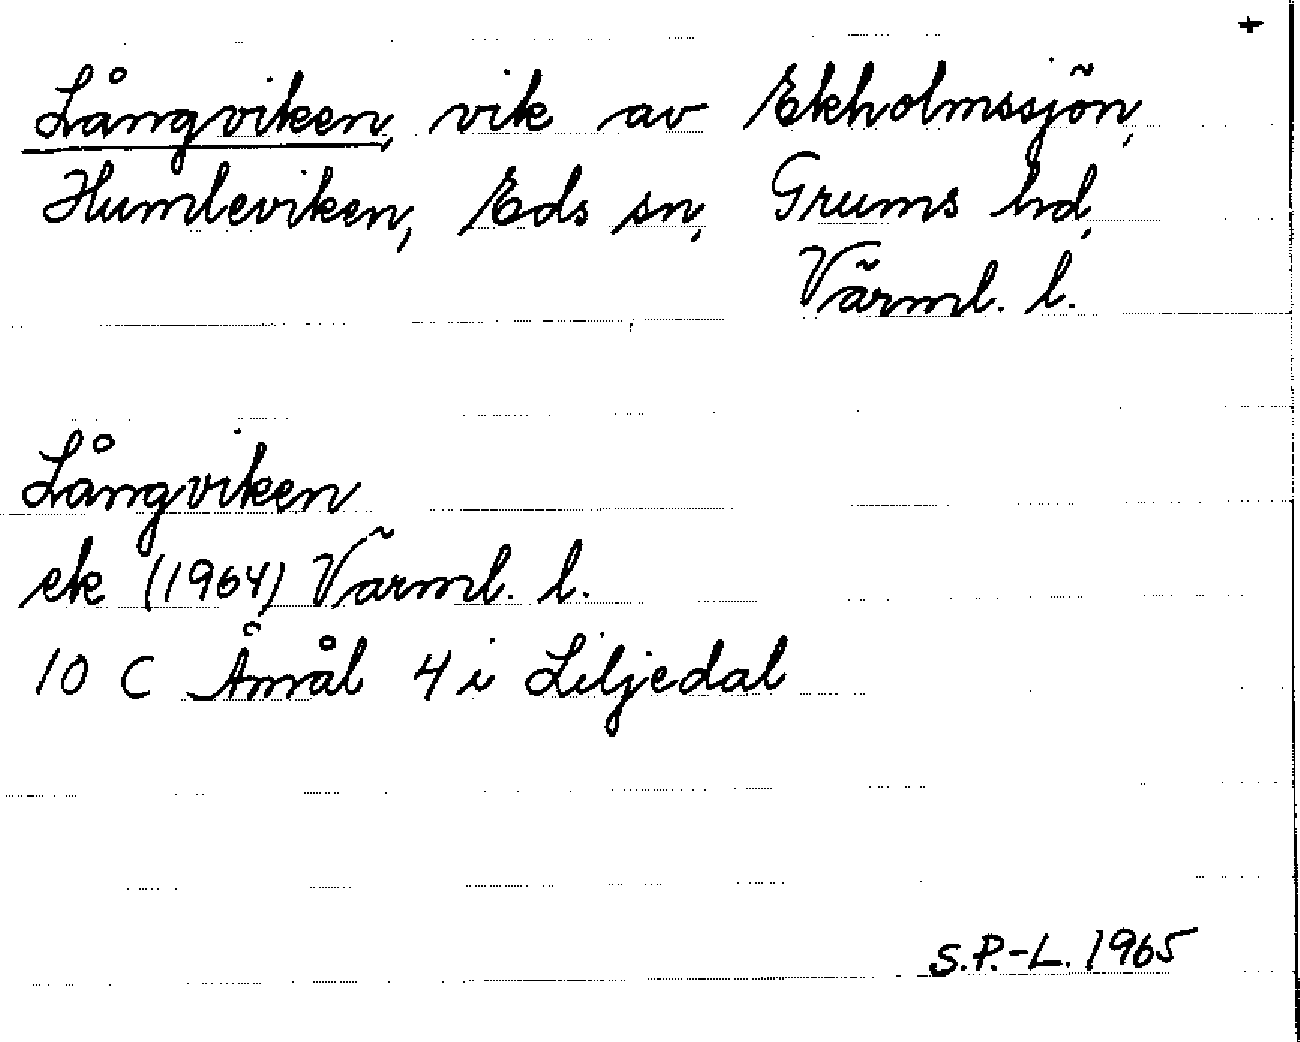 +
Långviken, vik av Ekholmssjön,
Humleviken, Eds sn, Grums hd,
Värml. l.
Långviken
ek (1964) Värml. l.
10 C Åmål 4 i Liljedal
S.P.-L. 1965